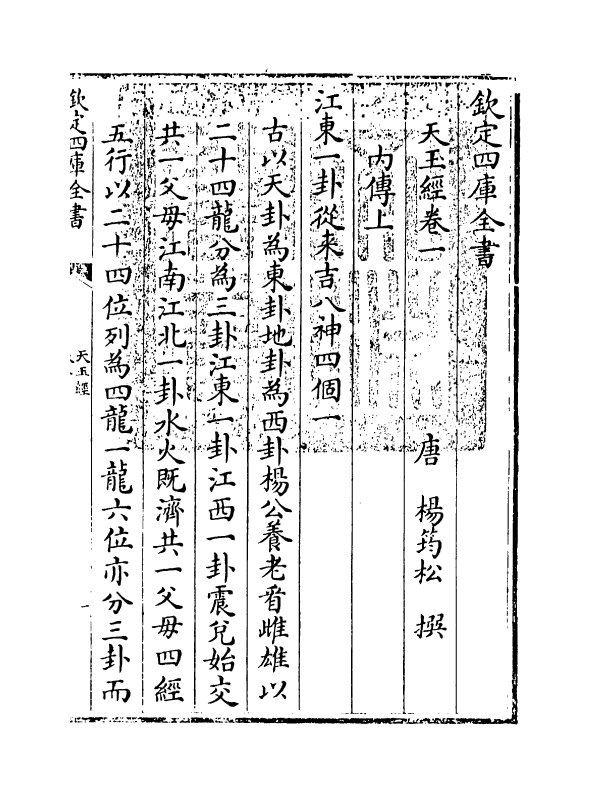 欽定四庫全書
天玉經卷一　唐　楊筠松　撰
內傳上
江東一卦從来吉八神四個一
古以天卦為東卦地卦為西卦楊公養老看雌雄以
二十四龍分為三卦江東一卦江西一卦震兌始交
共一父毋江南江北一卦水火既濟共一父毋四經
五行以二十四位列為四龍一龍六位亦分三卦而
欽定四庫全書
天玉經
一